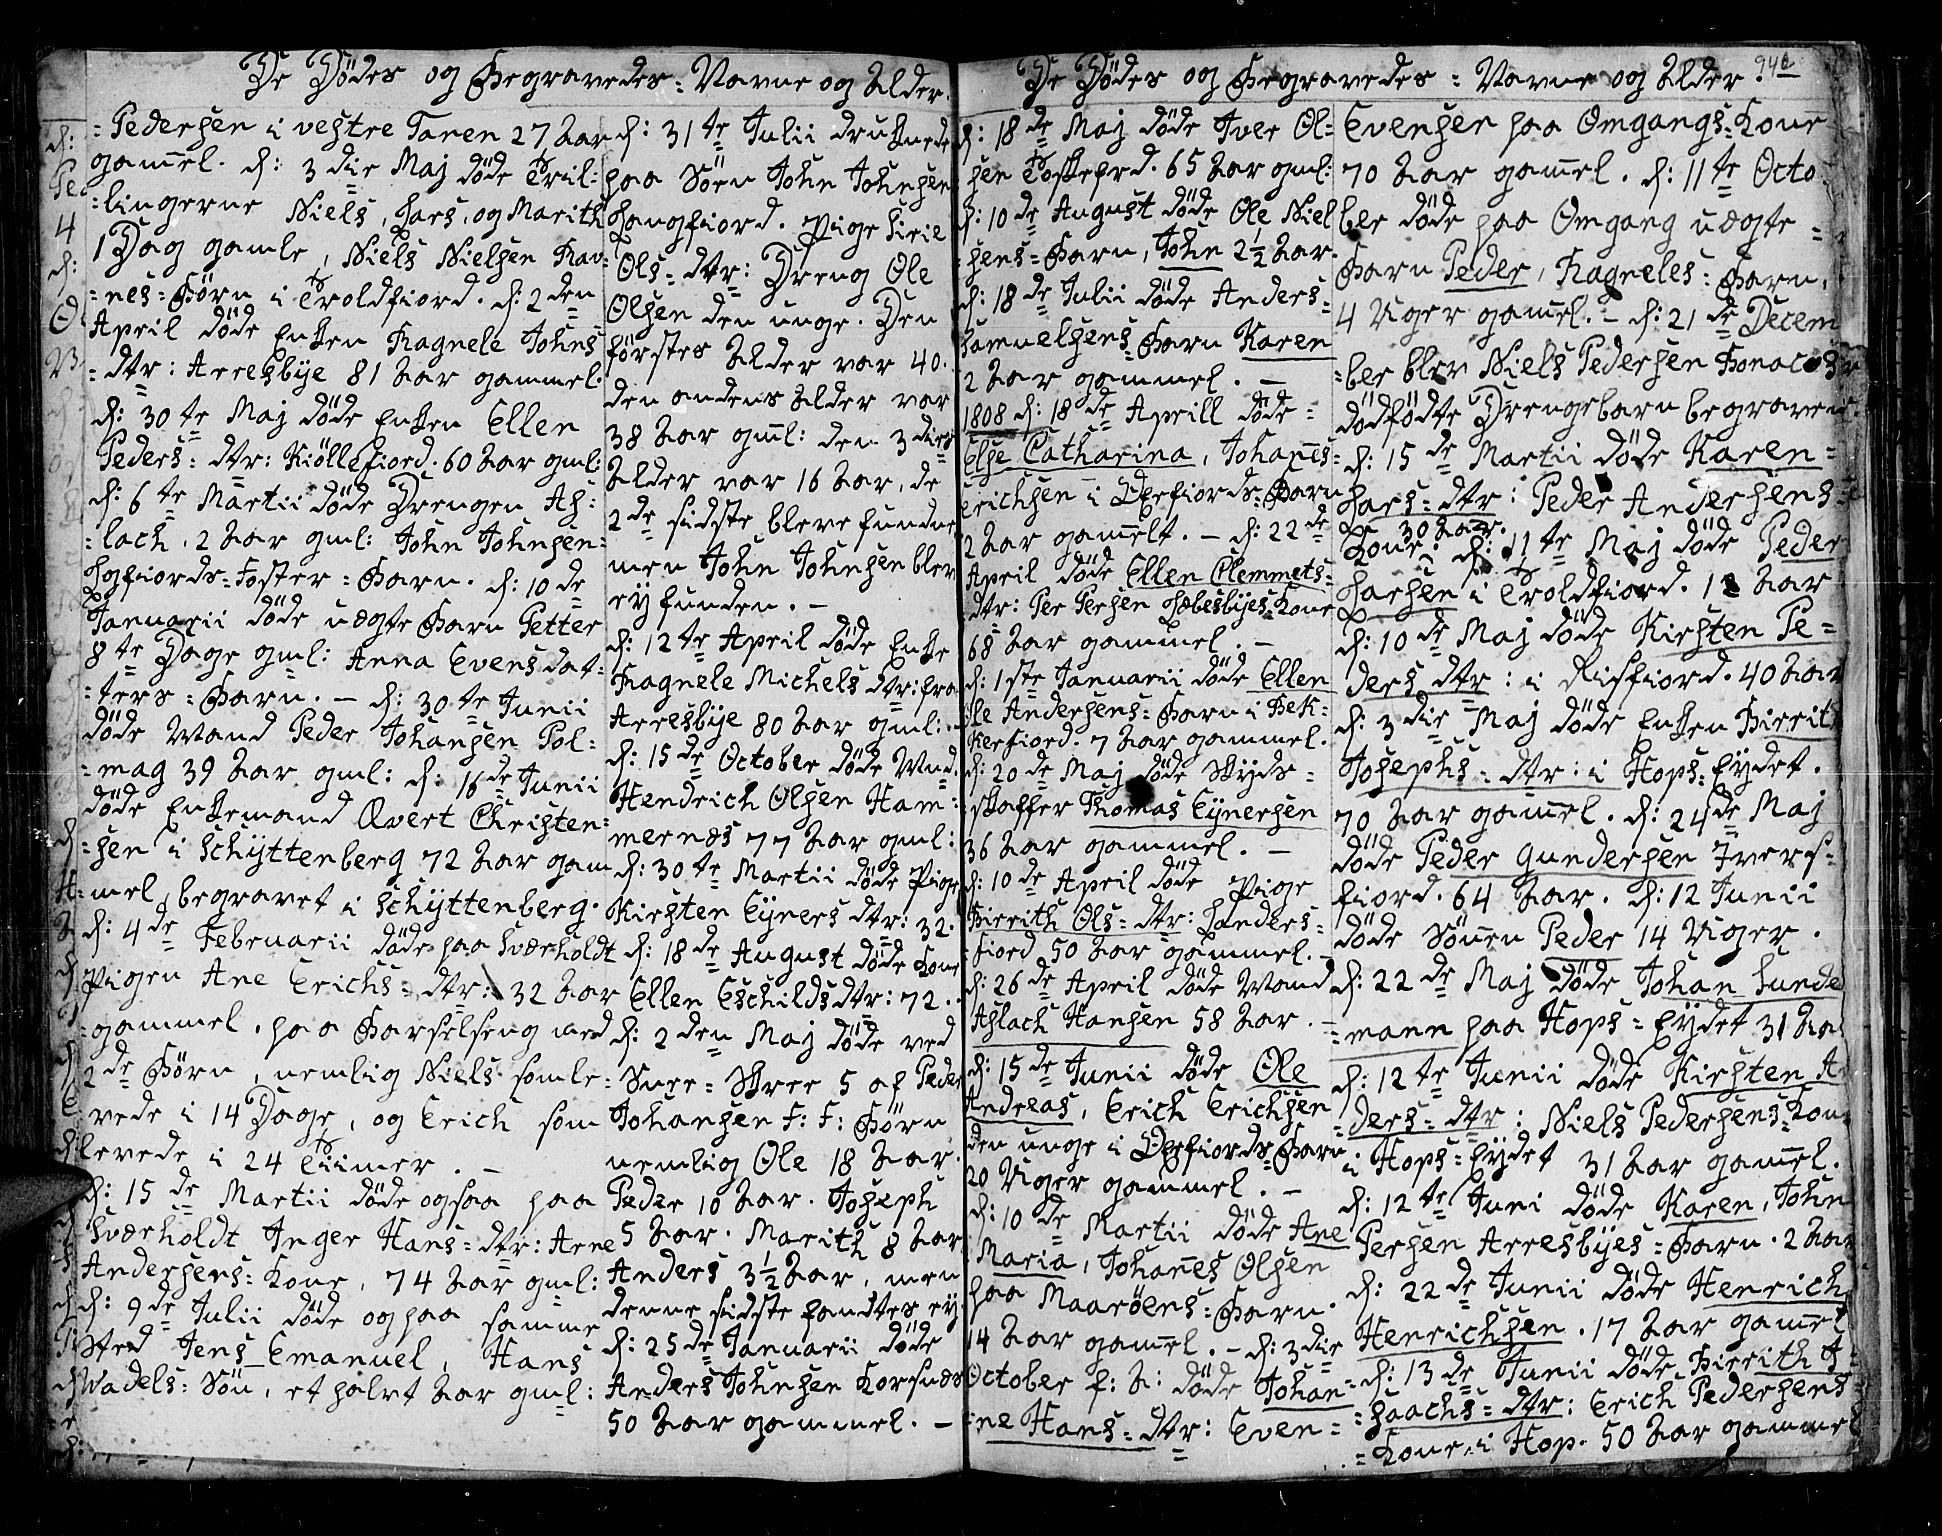 De Dödes og Begravedes = Navne og Alder.
= Pedersen i vestre Tanen 27 Aar
gam̅el. d: 3 die Maj döde Tril:
= lingerne Niels, Lars, og Marith
1 Dag gamle, Niels Nielsen Rav=
= nes = Börn i Troldfiord. d: 2 den
April döde Enken Ragnele Johns
= dtr: Arresbye 81 Aar gammel.
d: 30 te Maj döde Enken Ellen
Peders = dtr: Kiöllefiord. 60 Aar gml:
d: 6 te Martii döde Drengen As=
= lach. 2 Aar gml: John Johnsen=
Logfiords = Foster = Barn. d: 10 de
Januarii döde uægte Barn Petter
8 te Dage gml: Anna Evens dat=
= ters = Barn. — d: 30 te Junii
döde Mand Peder Johansen Pol=
= mag 39 Aar gml: d: 16 de Junii
döde Enkemand Evert Christen=
= sen i Schyttenberg 72 Aar gam
= mel, begravet i Schyttenberg.
d: 4 de Februarii döde paa Sværholdt
Pigen Ane Erichs = dtr: 32 Aar
= gammel. paa Barselseng med
2 de Börn, nemlig Niels som le=
vede i 14 Dage, og Erich som
levede i 24 Tiimer. —
d: 15 de Martii döde ogsaa paa
Sværholdt Inger Hans = dtr: Arne
Andersens = Kone, 74 Aar gml:
d: 9 de Julii döde og paa samme
Sted Jens Emanuel, Hans
Wadels = Sön, et halvt Aar gml:
d: 31 te Julii druknede
paa Söen John Johnsen
Langfiord. Pige Siri
Ols = dtr: Dreng Ole
Olsen den unge. Den
förstes Alder var 40.
den andens Alder var
38 Aar gml: den 3 dies
Alder var 16 Aar, de
2 de sidste bleve fundne
men John Johnsen blev
ey funden. —
d: 12 te April döde Enke
Ragnele Michels dtr: fra
Arresbye 80 Aar gml: —
d: 15 de October döde Mnd.
Hendrich Olsen Ham=
mernæs 77 Aar gml:
d: 30 te Martii döde Pige
Kirsten Eyners dtr: 32.
d: 18 de August döde Kone
Ellen Eschilds dtr: 72.
d: 2 den Maj döde ved
Snee = Skree 5 af Peder
Johansen F: F: Börn
nemlig Ole 18 Aar.
Peder 10 Aar. Joseph
5 Aar. Marith 8 Aar
Anders 3½ Aar, men
denne sidste fandtes ey
d: 25 de Januarii döde
Anders Johnsen Korsnæs
50 Aar gammel. —
De Dödes og Begravedes = Navne og Alder. 94
d: 18 de Maj döde Iver Ol=
sen Toskefrd. 65 Aar gml:
d: 10 de August döde Ole Niel
sens = Barn, John 2½ Aar.
d: 18 de Julii döde Anders =
Samuelsens = Barn Karen
2 Aar gammel. —
1808 d: 18 de Aprill döde =
Else Catharina, Johan̅es =
Erichsen i Eefiords = Barn
2 Aar gam̅elt. — d: 22 de
April döde Ellen Clemmets =
dtr: Per Persen Læbesbyes = Kone
68 Aar gammel. —
d: 1 ste Januarii döde Ellen
Ole Andersens = Barn i Bek=
kerfiord. 7 Aar gammel.
d: 20 de Maj döde Skyds =
skaffer Thomas Eynersen
36 Aar gammel. —
d: 10 de April döde Pige
Birrith Ols = dtr: Landers =
fiord 50 Aar gammel. —
d: 26 de April döde Mand
Aslach Hansen 58 Aar. —
d: 15 de Junii döde Ole
Andreas, Erich Erichsen
den unge i Eefiords = Barn
20 Uger gammel. —
d: 10 de Martii döde Ane
Maria, Johan̅es Olsen
paa Maaröens = Barn.
14 Aar gam̅el. — d: 3 die
October f: A: döde Johan=
= ne Hans = dtr: Even =
Evensen paa Omgangs = Kone
70 Aar gam̅el. d: 11 te Octo
ber döde paa Omgang uægte =
Barn Peder, Ragneles = Barn,
4 Uger gam̅el. — d: 21 de Decem
= ber blev Niels Pedersen
dödfödte Drengebarn begraven.
d: 15 de Martii döde Karen =
Lars = dtr: Peder Andersens =
Kone. 30 Aar. d: 11 te Maj döde Peder
Larsen i Troldfiord. 12 Aar
d: 10 de Maj döde Kirsten Pe=
ders dtr: i Risfiord. 40 Aar
d: 3 die Maj döde Enken Birrith
Josephs = dtr: i Hops = Eydet.
70 Aar gam̅el. d: 24 de Maj
döde Peder Gundersen Ivers=
fiord. 64 Aar. d: 12 Junii
döde Sönen Peder 14 Uger.
d: 22 de Maj döde Johan Sunde
= mann paa Hops = Eydet 31 Aar
d: 12 te Junii döde Kirsten An
= ders = dtr: Niels Pedersens = Kone
i Hops = Eydet 31 Aar gam̅el.
d: 12 te Juni döde Karen, John
Persen Arresbyes = Barn. 2 Aar
d: 22 de Junii döde Henrich
Henrichsen. 17 Aar gam̅el
d: 13 de Junii döde Birrith I=
= saachs = dtr: Erich Pedersens
= Kone, i Hop. 50 Aar gammel